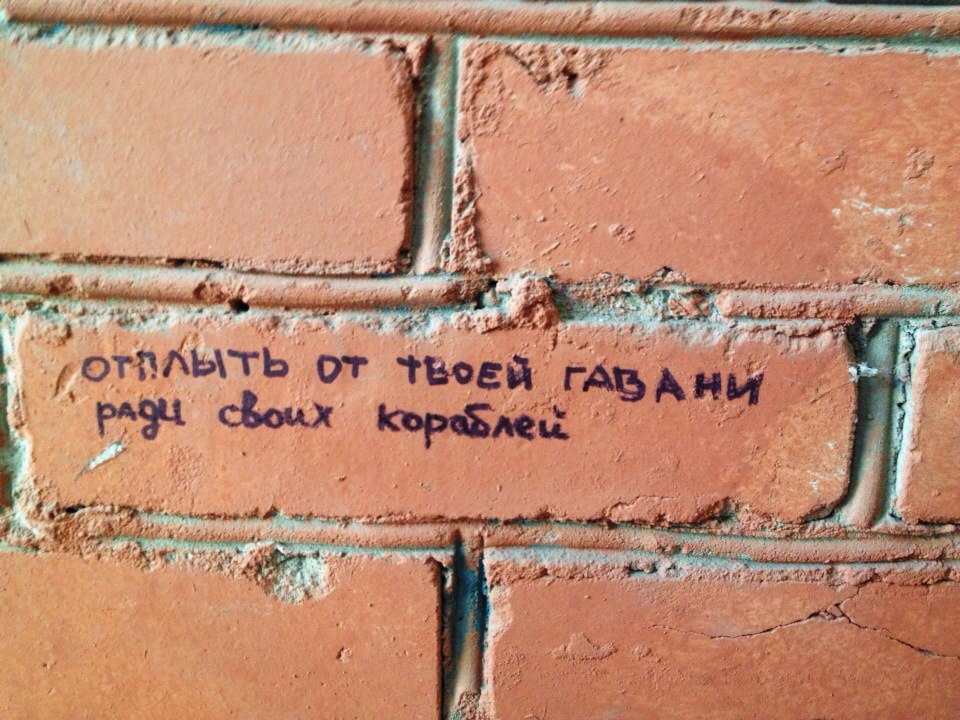 ОТПЛЫТЬ ОТ ТВОЕЙ ГАВАНИ
ради своих кораблей